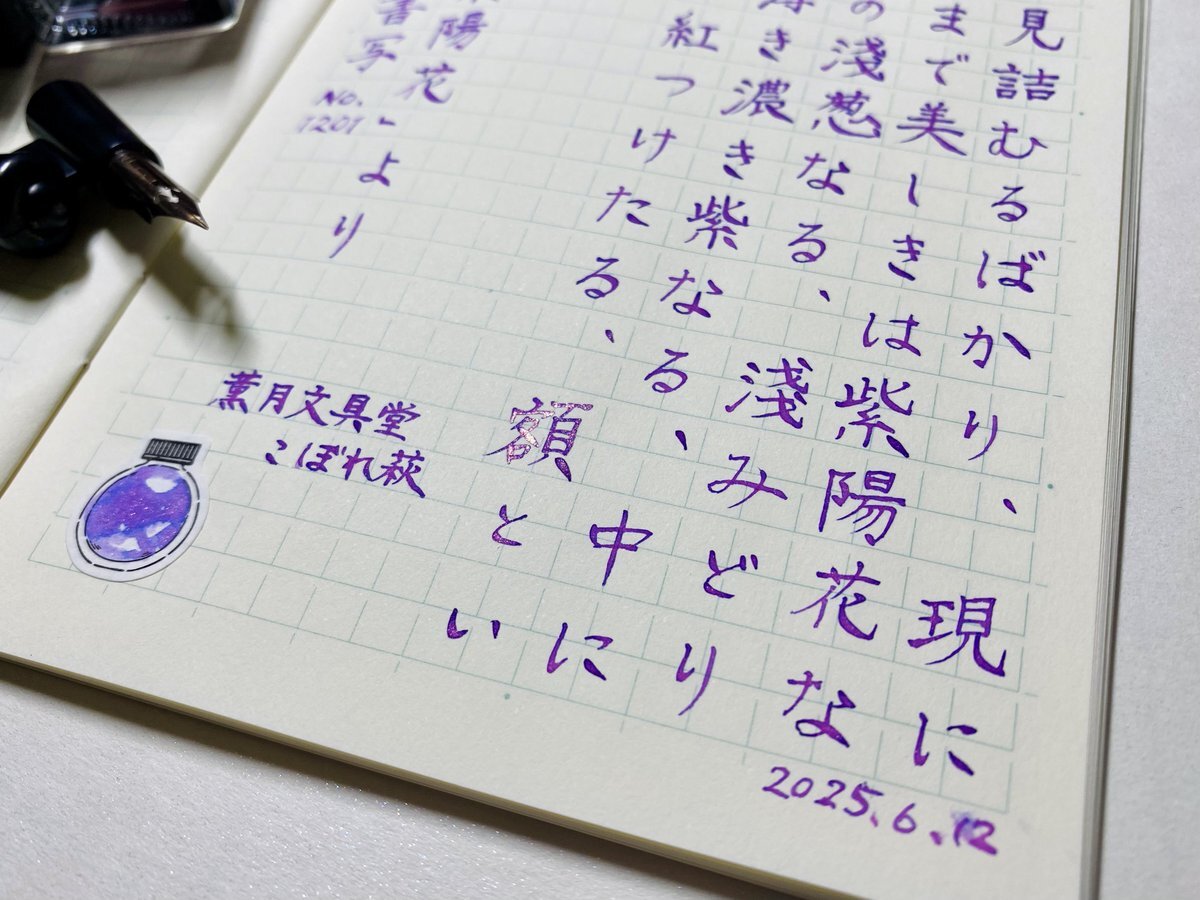 見詰むるばかり、現に
まで美しきは紫陽花な
の淺葱なる、淺みどり
き濃き紫なる、中に
紅つけたる、額とい
陽花」より
書写
No.
1201
薫月文具堂
こぼれ萩
2025.6.12